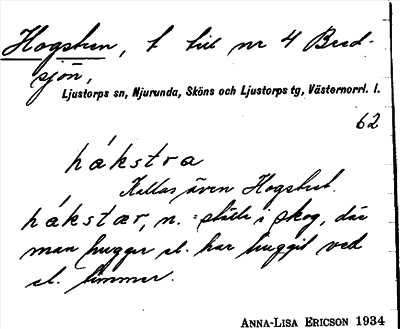 Hogsten, t till nr 4 Bred-
sjön,
Ljustorps sn, Njurunda, Sköns och Ljustorps tg, Västernorrl. l.
62
håkstra
Kallas även Hogstret.
håkstær, n. = ställe i skog, där
man hugger el. har huggit ved
el. timmer.
ANNA-LISA ERICSON 1934